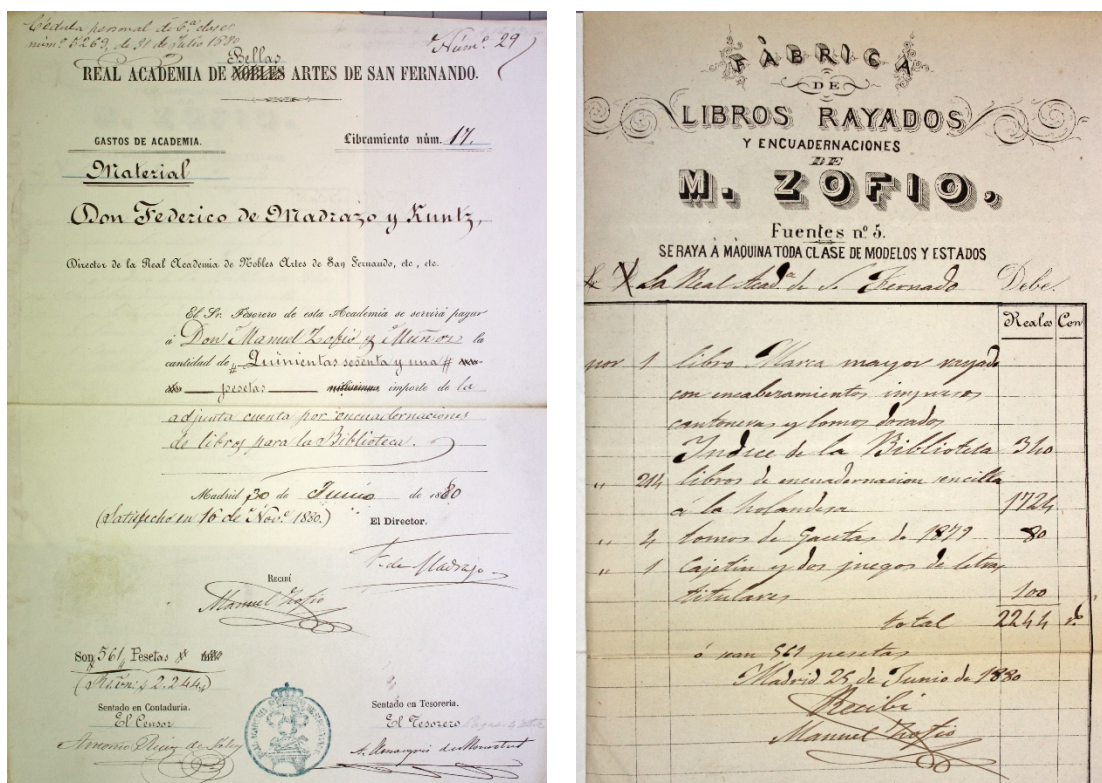 Cédula personal de 6ª clase
núm.º 5269, de 31 de Julio 1880
Núm.º 29
Bellas
REAL ACADEMIA DE NOBLES ARTES DE SAN FERNANDO.
GASTOS DE ACADEMIA.
Libramiento núm. 17.
Material
Don Federico de Madrazo y Kuntz,
Director de la Real Academia de Nobles Artes de San Fernando, etc., etc.
El Sr. Tesorero de esta Academia se servirá pagar
á Don Manuel Zofio y Muñoz la
cantidad de Quinientas sesenta y una
pesetas milésimas importe de la
adjunta cuenta por encuadernaciones
de libros para la Biblioteca.
Madrid 30 de Junio de 1880
(Satisfecho en 16 de Nov.e 1880.)
El Director.
F. de Madrazo
RECIBÍ
Manuel Zofio
Son 561 Pesetas
2.244
Sentado en Contaduría.
El Censor
Sentado en Tesorería.
El Tesorero
FÀBRICA
DE
LIBROS RAYADOS
Y ENCUADERNACIONES
DE
M. ZOFIO,
Fuentes nº 5.
SE RAYA Á MÁQUINA TODA CLASE DE MODELOS Y ESTADOS
La Real Acadª de S. Fernado Debe.
Reales Cen
por 1 libro Marca mayor rayado
con encabezamientos impresos
cantoneras y lomos dorados
Indice de la Biblioteca 340
" 214 libros de encuadernacion sencilla
á la holandesa 1724
" 4 tomos de Gacetas de 1879 80
" 1 Cajetin y dos juegos de letras
titulares 100
total 2244
ó sean 561 pesetas
Madrid 25 de Junio de 1880
Recibi
Manuel Zofio